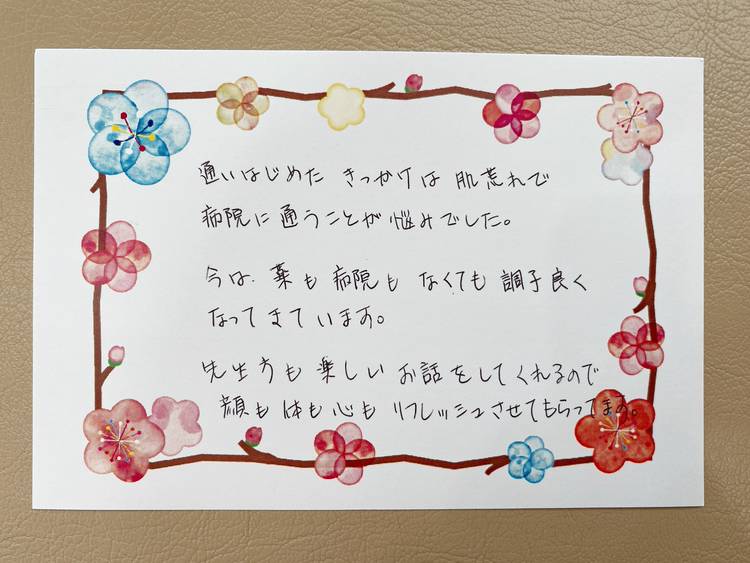 通いはじめた きっかけは 肌荒れで
病院に 通うことが 悩みでした。
今は、薬も 病院も なくても 調子良く
なってきています。
先生方も 楽しい お話をしてくれるので
顔も 体も 心も リフレッシュさせてもらってます。